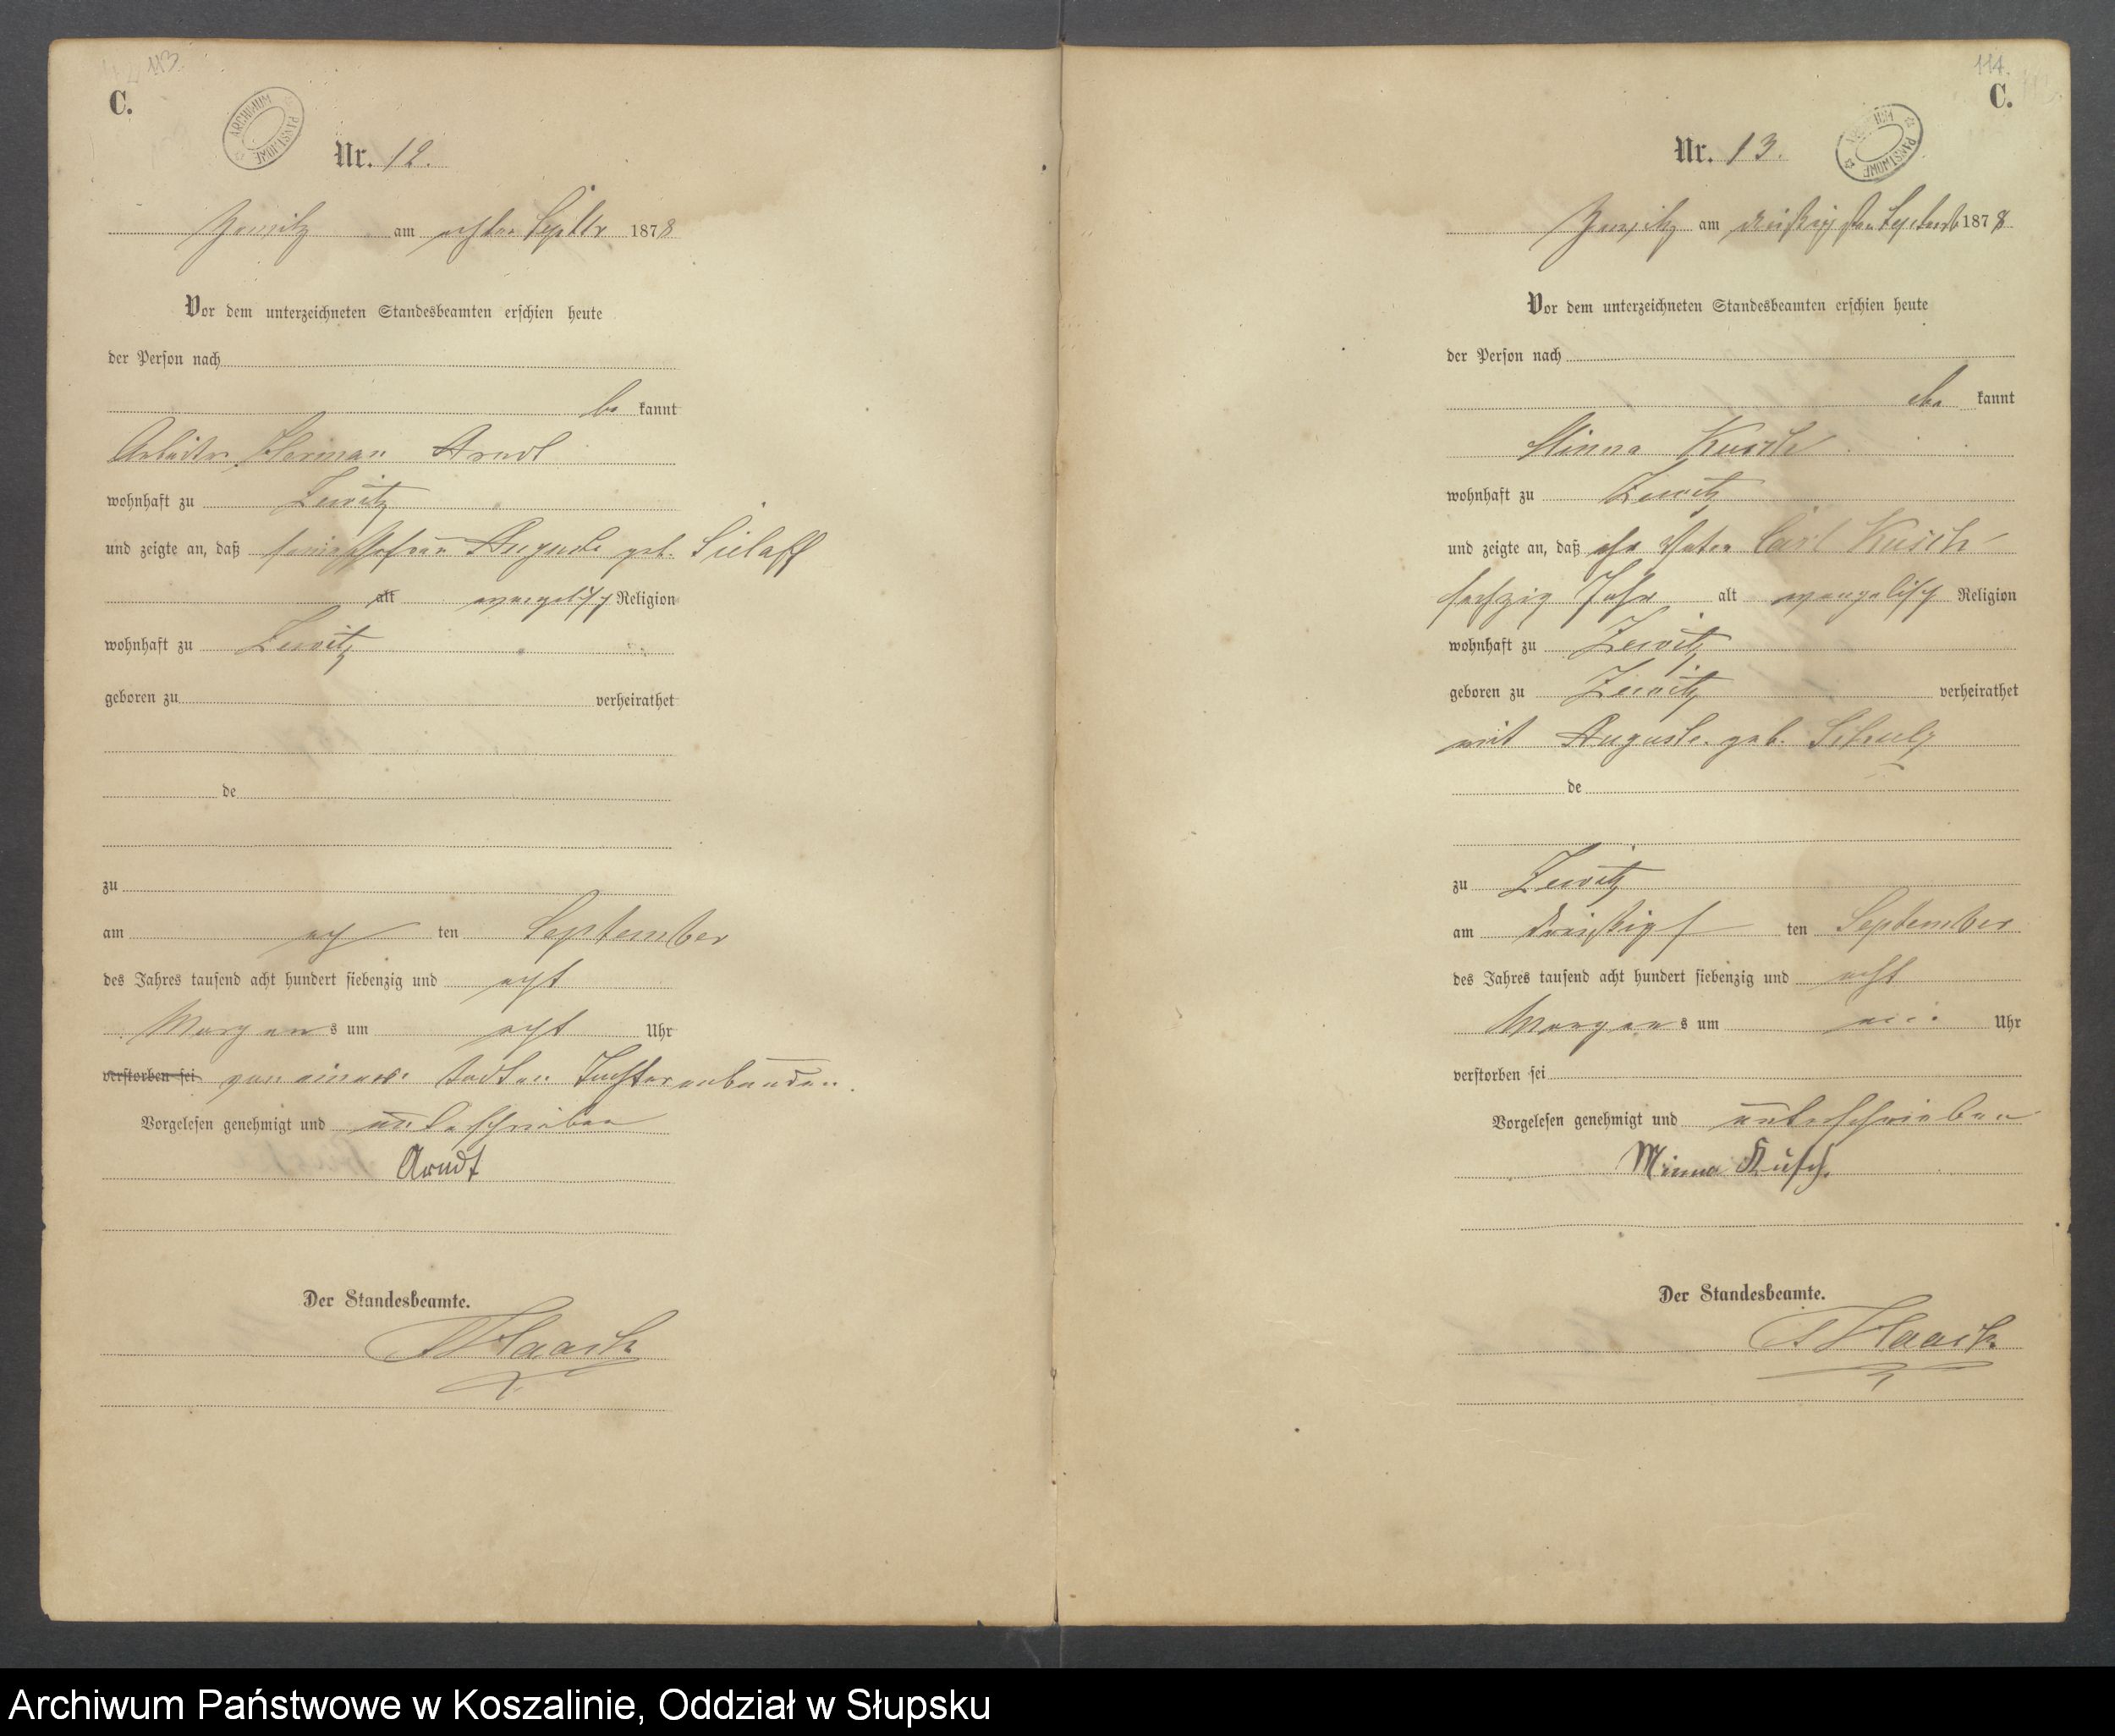 113.
C.
ARCHIWUM PAŃSTWOWE
Nr. 12.
am achten Septbr 1878
Vor dem unterzeichneten Standesbeamten erschien heute
der Person nach
be kannt
Arbeiter Herman Arndt
wohnhaft zu Zewitz
und zeigte an, daß seine Ehefrau Auguste geb. Sielaff
alt evangelisch Religion
wohnhaft zu Zewitz
geboren zu verheirathet
de
zu
am ach ten September
des Jahres tausend acht hundert siebenzig und acht
Morgens um acht Uhr
verstorben sei von einer todten Tochter entbunden.
Vorgelesen genehmigt und unterschrieben
Arndt
Der Standesbeamte.
Haack
114.
C.
ARCHIWUM PAŃSTWOWE
Nr. 13.
am dreißigsten Septemb 1878
Vor dem unterzeichneten Standesbeamten erschien heute
der Person nach
be kannt
Minna Kusch
wohnhaft zu Zewitz
und zeigte an, daß ihr Vater Carl Kusch
sechzig Jahr alt evangelisch Religion
wohnhaft zu Zewitz
geboren zu Zewitz verheirathet
mit Auguste geb. Schulz
de
zu Zewitz
am dreißigs ten September
des Jahres tausend acht hundert siebenzig und acht
Morgens um Uhr
verstorben sei
Vorgelesen genehmigt und unterschrieben
Minna Kusch.
Der Standesbeamte.
Haack
Archiwum Państwowe w Koszalinie, Oddział w Słupsku